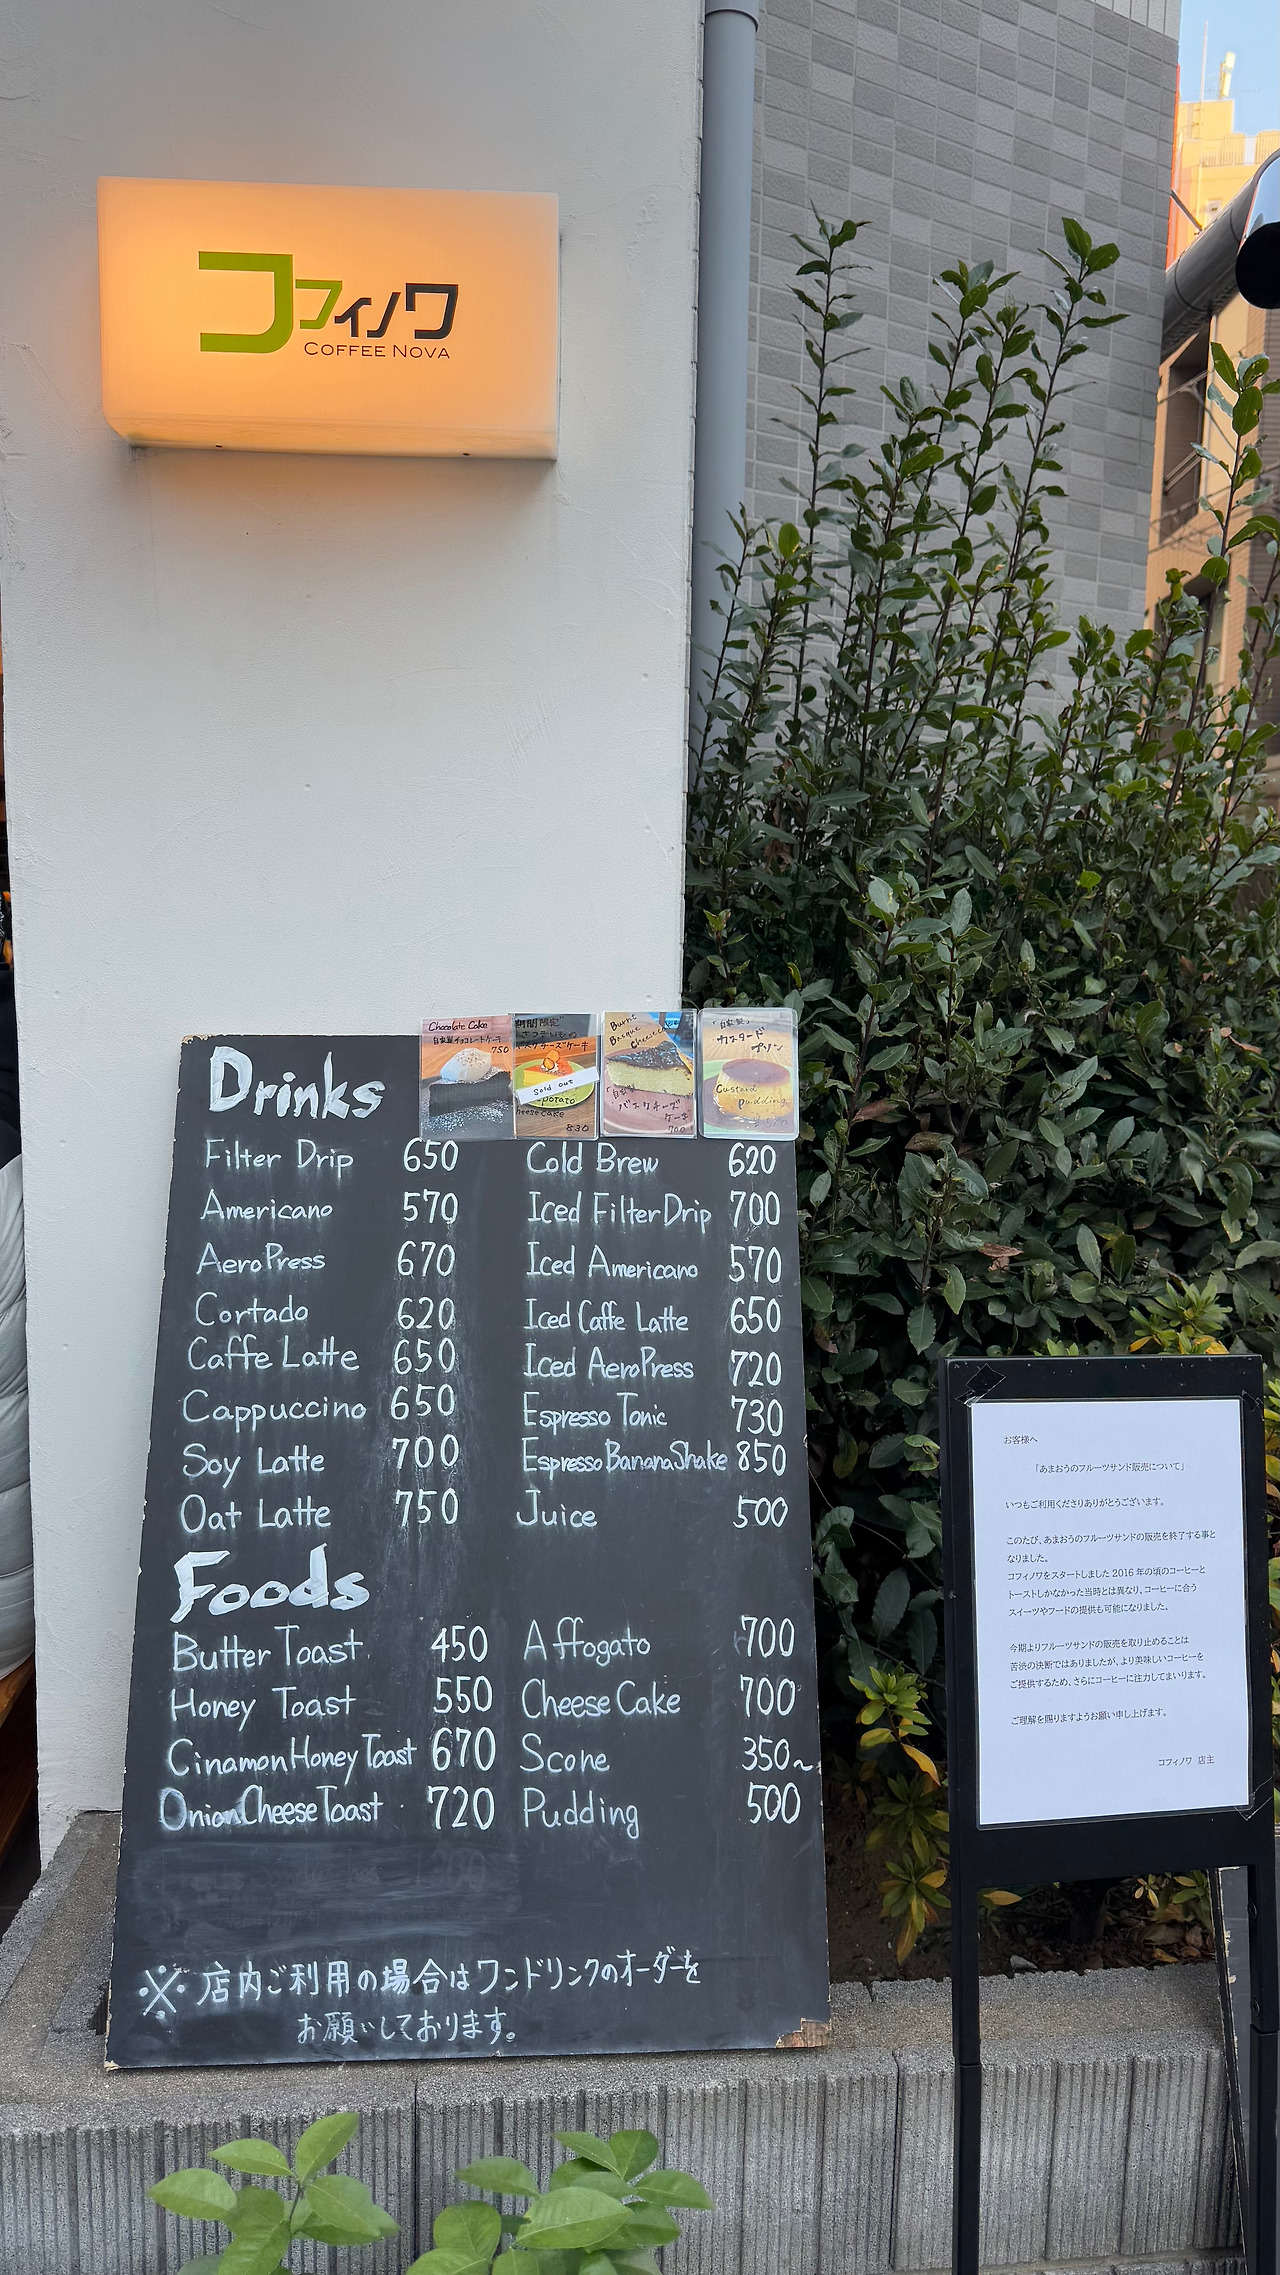 コフィノワ
COFFEE NOVA
Chocolate Cake
自家製チョコレートケーキ
750
期間限定
さつまいもの
バスクチーズケーキ
Sold out
potato
cheesecake
830
Burnt
Basque
Cheesecake
「自家製」
バスクチーズ
ケーキ
700
「自家製」
カスタード
プリン
Custard
pudding
500
Drinks
Filter Drip 650
Americano 570
AeroPress 670
Cortado 620
Caffe Latte 650
Cappuccino 650
Soy Latte 700
Oat Latte 750
Cold Brew 620
Iced Filter Drip 700
Iced Americano 570
Iced Caffe Latte 650
Iced AeroPress 720
Espresso Tonic 730
Espresso Banana Shake 850
Juice 500
Foods
Butter Toast 450
Honey Toast 550
Cinamon Honey Toast 670
Onion Cheese Toast 720
Affogato 700
Cheese Cake 700
Scone 350~
Pudding 500
※店内ご利用の場合はワンドリンクのオーダーを
お願いしております。
お客様へ
「あまおうのフルーツサンド販売について」
いつもご利用くださりありがとうございます。
このたび、あまおうのフルーツサンドの販売を終了する事と
なりました。
コフィノワをスタートしました 2016 年の頃のコーヒーと
トーストしかなかった当時とは異なり、コーヒーに合う
スイーツやフードの提供も可能になりました。
今期よりフルーツサンドの販売を取り止めることは
苦渋の決断ではありましたが、より美味しいコーヒーを
ご提供するため、さらにコーヒーに注力してまいります。
ご理解を賜りますようお願い申し上げます。
コフィノワ 店主